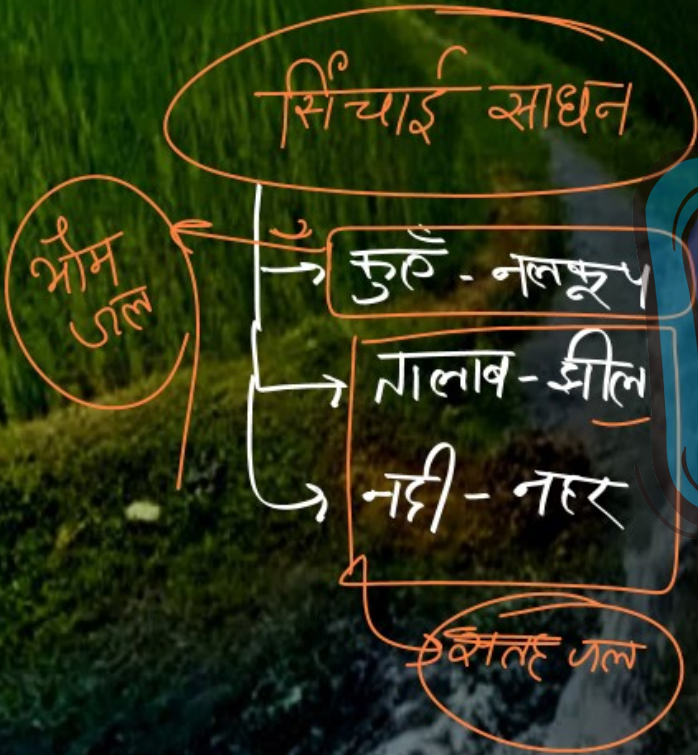 सिंचाई साधन
भौम
जल
कुएँ - नलकूप
तालाब - झील
नदी - नहर
सतह जल